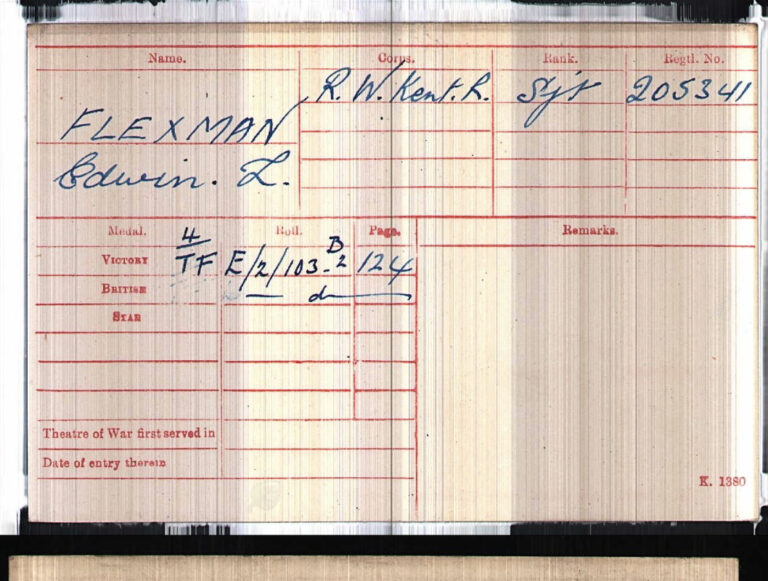 Name. Corps. Rank. Regtl. No.
R. W. Kent. R. Sjt 205341
FLEXMAN
Edwin. L.
Medal. Roll. Page. Remarks.
4
VICTORY TF E/2/103 B-2 124
BRITISH — d —
STAR
Theatre of War first served in
Date of entry therein
K. 1380